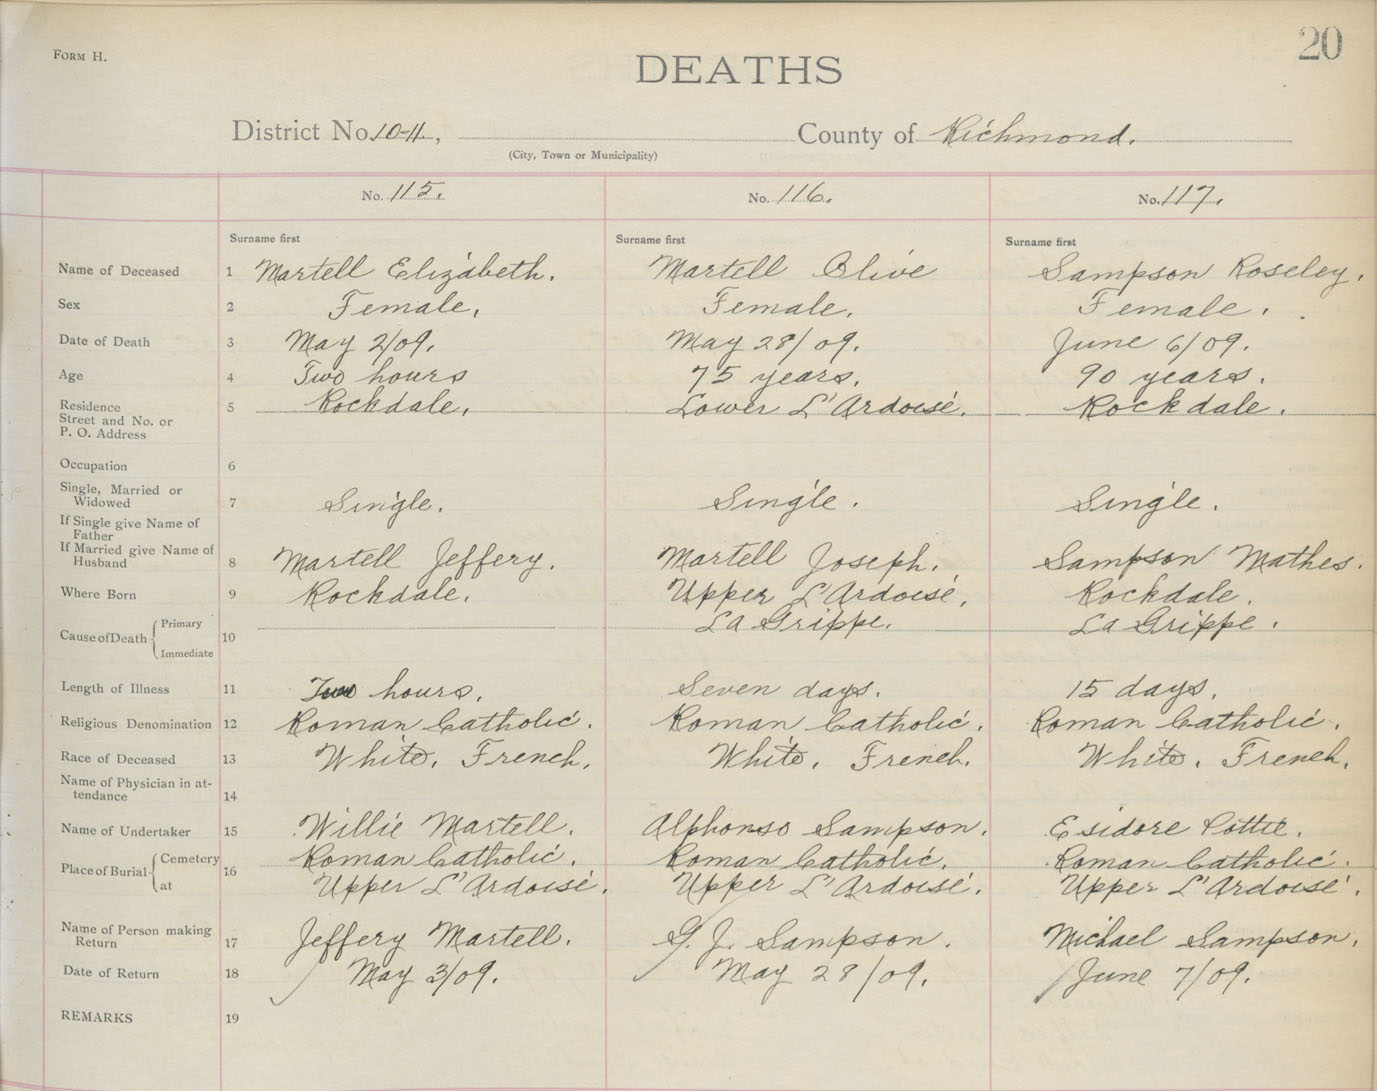 FORM H.
20
DEATHS
District No. 10-11, County of Richmond.
(City, Town or Municipality)
No. 115. No. 116. No. 117.
Surname first Surname first Surname first
Name of Deceased 1 Martell Elizabeth. Martell Olive Sampson Roseley.
Sex 2 Female. Female. Female.
Date of Death 3 May 2/09. May 28/09. June 6/09.
Age 4 Two hours 75 years. 90 years.
Residence 5 Rockdale. Lower L'Ardoise. Rockdale.
Street and No. or
P. O. Address
Occupation 6
Single, Married or
Widowed 7 Single. Single. Single.
If Single give Name of
Father
If Married give Name of
Husband 8 Martell Jeffery. Martell Joseph. Sampson Mathes.
Where Born 9 Rockdale. Upper L'Ardoise. Rockdale.
Cause of Death Primary La Grippe. La Grippe.
10
Immediate
Length of Illness 11 Two hours. Seven days. 15 days.
Religious Denomination 12 Roman Catholic. Roman Catholic. Roman Catholic.
Race of Deceased 13 White. French. White. French. White. French.
Name of Physician in at-
tendance 14
Name of Undertaker 15 Willie Martell. Alphonso Sampson. Esidore Pottie.
Place of Burial Cemetery 16 Roman Catholic. Roman Catholic. Roman Catholic.
at Upper L'Ardoise. Upper L'Ardoise. Upper L'Ardoise.
Name of Person making
Return 17 Jeffery Martell. G. J. Sampson. Michael Sampson.
Date of Return 18 May 3/09. May 28/09. June 7/09.
REMARKS 19